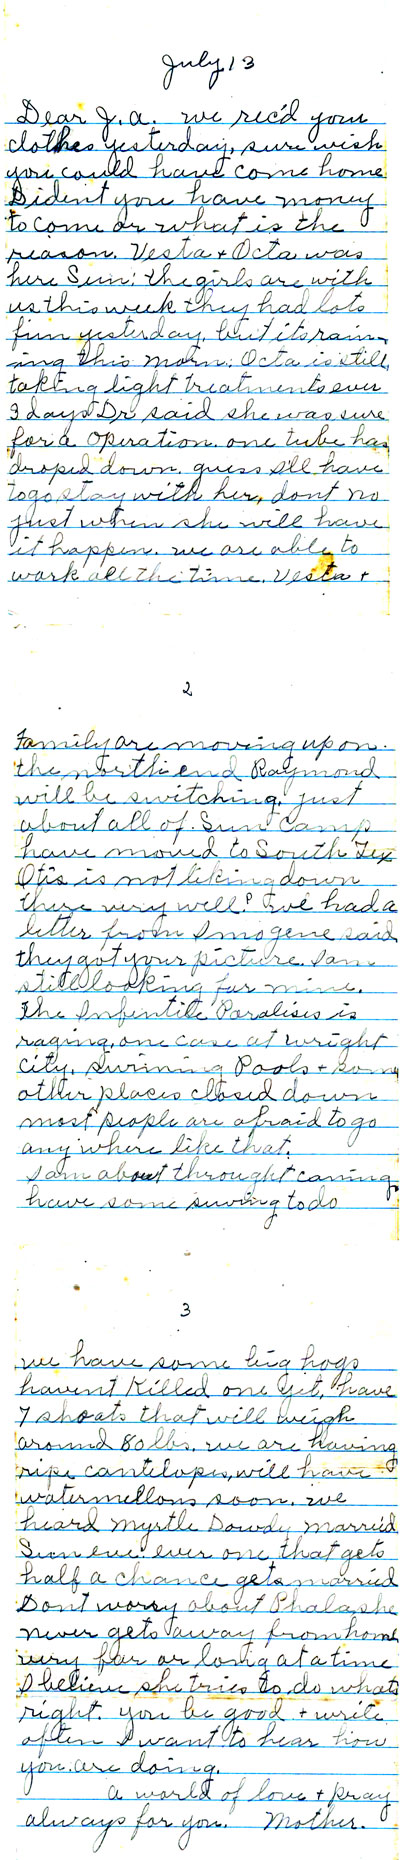 July 13
Dear J.A. we rec'd your
clothes yesterday, sure wish
you could have come home
Dident you have money
to come or what is the
reason. Vesta + Octa was
here Sun; the girls are with
us this week they had lots
fun yesterday but its rain-
ing this morn; Octa is still
taking light treatments ever
3 days Dr said she was sure
for a operation. one tube has
droped down. guess I'll have
to go stay with her, dont no
just when she will have
it happen. we are able to
work all the time. Vesta +
2
Family are moving up on
the north end Raymond
will be switching. just
about all of Sun Camp
have moved to South Tex
Otis is not liking down
there very well? We had a
letter from Imogene said
they got your picture. I am
still looking for mine.
The Infentile Paralisis is
raging, one case at wright
city. swimming Pools + some
other places closed down
most people are afraid to go
any where like that.
I am about throught caning
have some suwing to do
3
we have some big hogs
havent Killed one yet, have
7 shoats that will weigh
around 80 lbs. we are having
ripe cantelopes, will have
watermellons soon. we
heard Myrtle Dowdy married
Sun eve. ever one that gets
half a chance gets married
Dont worry about Phala she
never gets away from home
very far or long at a time
I believe she tries to do whats
right. you be good + write
often I want to hear how
you are doing.
a world of love + pray
always for you. Mother.